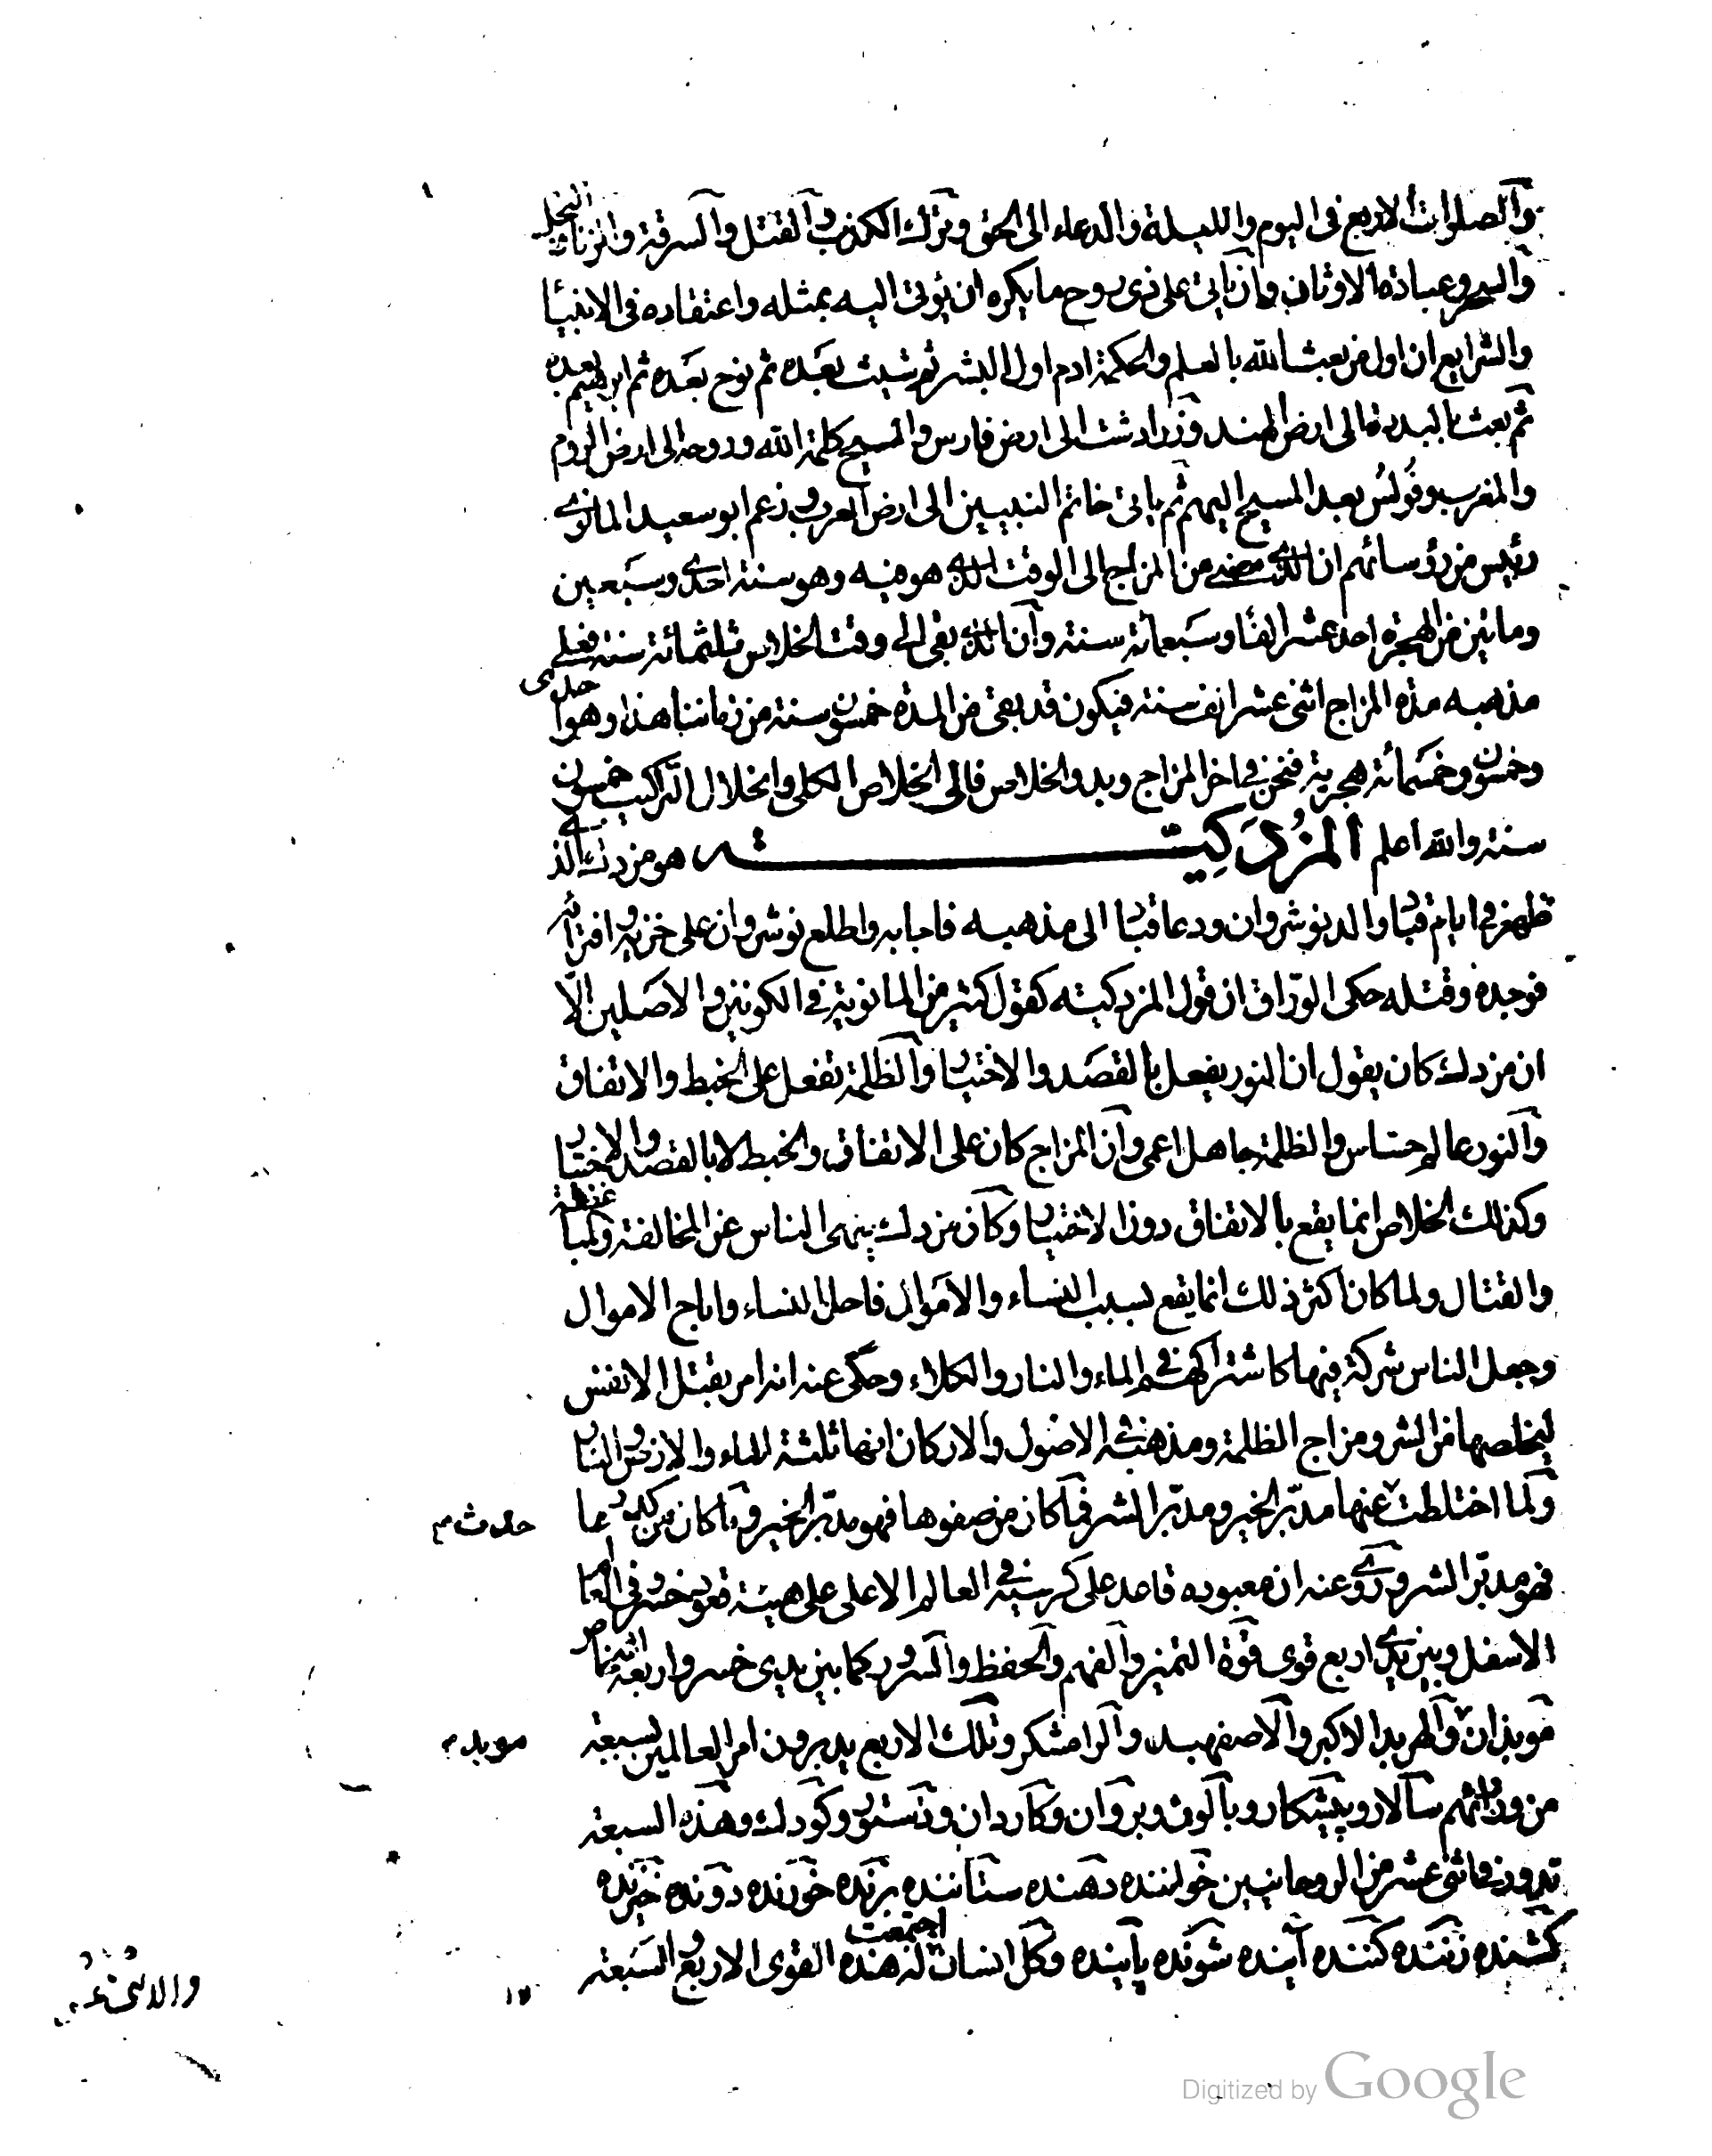 والصلوات الاربع فى اليوم والليلة والدعاء الى الحق وترك الكذب والقتل والسرقة والزنا والبخل
والسحر وعبادة الاوثان وان ياتى على ذى روح ما يكره ان يؤتى اليه بمثله واعتقاده فى الانبيا
والشرايع ان اول من بعث الله بالعلم والحكمة ادم اول البشر ثم شيث بعده ثم نوح بعده ثم ابرهيم بعده
ثم بعث بالبددة الى ارض الهند وزرادشت الى ارض فارس والمسيح كلمة الله وروحه الى ارض الروم
والمغرب وفولس بعد المسيح اليهم ثم ياتى خاتم النبيين الى ارض العرب وزعم ابو سعيد المانوى
رئيس من رؤسائهم ان الذى مضى من المزاج الى الوقت الذى هو فيه وهو سنة احدى وسبعين
ومائتين من الهجرة احد عشر الفا وسبعمائة سنة وان الذى بقى الى وقت الخلاص ثلثمائة سنة فعلى
مذهبه مدة المزاج اثنى عشر الف سنة فيكون قد بقى من المدة خمسون سنة من زماننا هذا وهو احدى
وخمسون وخمسمائة هجرية فنحن فى اخر المزاج وبدو الخلاص فالى الخلاص الكلى وانحلال التركيب خمسون
سنة والله اعلم المزدكية هو مزدك الذى
ظهر فى ايام قباد والد نوشروان ودعا قباد الى مذهبه فاجابه واطلع نوشروان على خزيه وافترائه
فوجده وقتله حكى الوراق ان قول المزدكية كقول كثير من المانوية فى الكونين والاصلين الا
ان مزدك كان يقول ان النور يفعل بالقصد والاختيار والظلمة تفعل على الخبط والاتفاق
والنور عالم حساس والظلمة جاهل اعمى وان المزاج كان على الاتفاق والخبط لا بالقصد والاختيار
وكذلك الخلاص انما يقع بالاتفاق دون الاختيار وكان مزدك ينهى الناس عن المخالفة والمباغضة
والقتال ولما كان اكثر ذلك انما يقع بسبب النساء والاموال فاحل النساء واباح الاموال
وجعل الناس شركة فيها كاشتراكهم فى الماء والنار والكلاء وحكى عنه انه امر بقتل الانفس
ليخلصها من الشر ومزاج الظلمة ومذهبه فى الاصول والاركان انها ثلثة الماء والارض والنار
ولما اختلطت عنها مدبر الخير ومدبر الشر فما كان من صفوها فهو مدبر الخير وما كان من كدرها
حدث م
فهو مدبر الشر وروى عنه ان معبوده قاعد على كرسيه فى العالم الاعلى على هيئة قعود خسرو فى العالم
الاسفل وبين يديه اربع قوى قوة التميز والفهم والحفظ والسرور كما بين يدى خسرو اربعة اشخاص
موبذان والهربد الاكبر والاصفهبد والرامشكر وتلك الاربع يدبرون امر العالمين بسبعة
موبد م
من وزرائهم سالار وپيشكار وبالون وبروان وكاردان ودستور وكودك وهذه السبعة
تدور فى اثنى عشر من الروحانيين خواننده دهنده ستاننده برنده خورنده دونده خيزنده
كشنده زننده كننده آينده شونده پاينده وكل انسان اجتمعت له هذه القوى الاربع والسبعة
١٧
والاثنى عشر
Digitized by Google